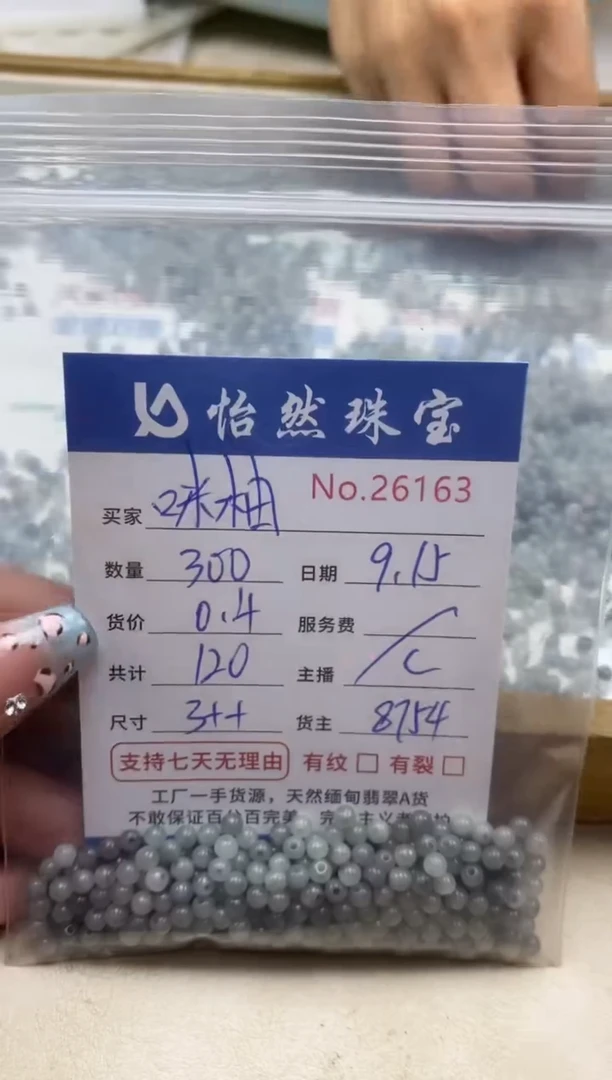 怡然珠宝
No.26163
买家 咪柚
数量 300 日期 9.15
货价 0.4 服务费 /
共计 120 主播 C
尺寸 3++ 货主 8754
支持七天无理由 有纹 □ 有裂 □
工厂一手货源，天然缅甸翡翠A货
不敢保证百分百完美，完 主义者